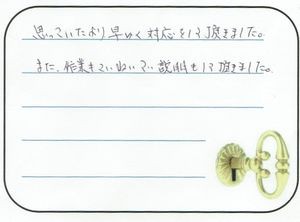 思っていたより早く対応をして頂きました。
また、作業もていねいで説明もして頂きました。